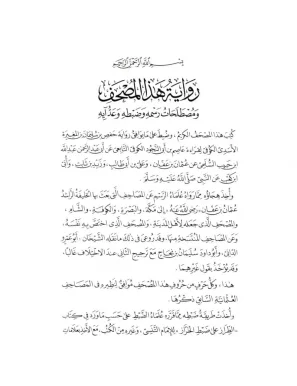 بِسْمِ اللَّهِ الرَّحْمَٰنِ الرَّحِيمِ
رِوَايَةُ هَذَا المُصْحَفِ
وَمُصْطَلَحَاتُ رَسْمِهِ وَضَبْطِهِ وَعَدِّ آيِهِ
كُتِبَ هَذَا المُصْحَفُ الكَرِيمُ، وَضُبِطَ عَلَى مَا يُوَافِقُ رِوَايَةَ حَفْصِ بْنِ سُلَيْمَانَ بْنِ المُغِيرَةِ
الأَسَدِيِّ الكُوفِيِّ لِقِرَاءَةِ عَاصِمِ بْنِ أَبِي النَّجُودِ الكُوفِيِّ التَّابِعِيِّ عَنْ أَبِي عَبْدِ الرَّحْمَنِ عَبْدِ اللَّهِ
ابْنِ حَبِيبٍ السُّلَمِيِّ عَنْ عُثْمَانَ بْنِ عَفَّانَ، وَعَلِيِّ بْنِ أَبِي طَالِبٍ، وَزَيْدِ بْنِ ثَابِتٍ، وَأُبَيِّ
ابْنِ كَعْبٍ عَنِ النَّبِيِّ صَلَّى اللَّهُ عَلَيْهِ وَسَلَّمَ.
وَأُخِذَ هِجَاؤُهُ مِمَّا رَوَاهُ عُلَمَاءُ الرَّسْمِ عَنِ المَصَاحِفِ الَّتِي بَعَثَ بِهَا الخَلِيفَةُ الرَّاشِدُ
عُثْمَانُ بْنُ عَفَّانَ - رَضِيَ اللَّهُ عَنْهُ - إِلَى مَكَّةَ، وَالبَصْرَةِ، وَالكُوفَةِ، وَالشَّامِ،
وَالمُصْحَفِ الَّذِي جَعَلَهُ لِأَهْلِ المَدِينَةِ، وَالمُصْحَفِ الَّذِي اخْتَصَّ بِهِ نَفْسَهُ،
وَعَنِ المَصَاحِفِ المُنْتَسَخَةِ مِنْهَا. وَقَدْ رُوعِيَ فِي ذَلِكَ مَا نَقَلَهُ الشَّيْخَانِ: أَبُو عَمْرٍو
الدَّانِيُّ، وَأَبُو دَاوُدَ سُلَيْمَانُ بْنُ نَجَاحٍ مَعَ تَرْجِيحِ الثَّانِي عِنْدَ الِاخْتِلَافِ غَالِبًا،
وَقَدْ يُؤْخَذُ بِقَوْلِ غَيْرِهِمَا.
هَذَا، وَكُلُّ حَرْفٍ مِنْ حُرُوفِ هَذَا المُصْحَفِ مُوَافِقٌ لِنَظِيرِهِ فِي المَصَاحِفِ
العُثْمَانِيَّةِ السَّابِقِ ذِكْرُهَا.
وَأُخِذَتْ طَرِيقَةُ ضَبْطِهِ مِمَّا قَرَّرَهُ عُلَمَاءُ الضَّبْطِ عَلَى حَسَبِ مَا وَرَدَ فِي كِتَابِ
«الطِّرَازِ عَلَى ضَبْطِ الخَرَّازِ» لِلْإِمَامِ التَّنَسِيِّ، وَغَيْرِهِ مِنَ الكُتُبِ، مَعَ الأَخْذِ بِعَلَامَاتِ